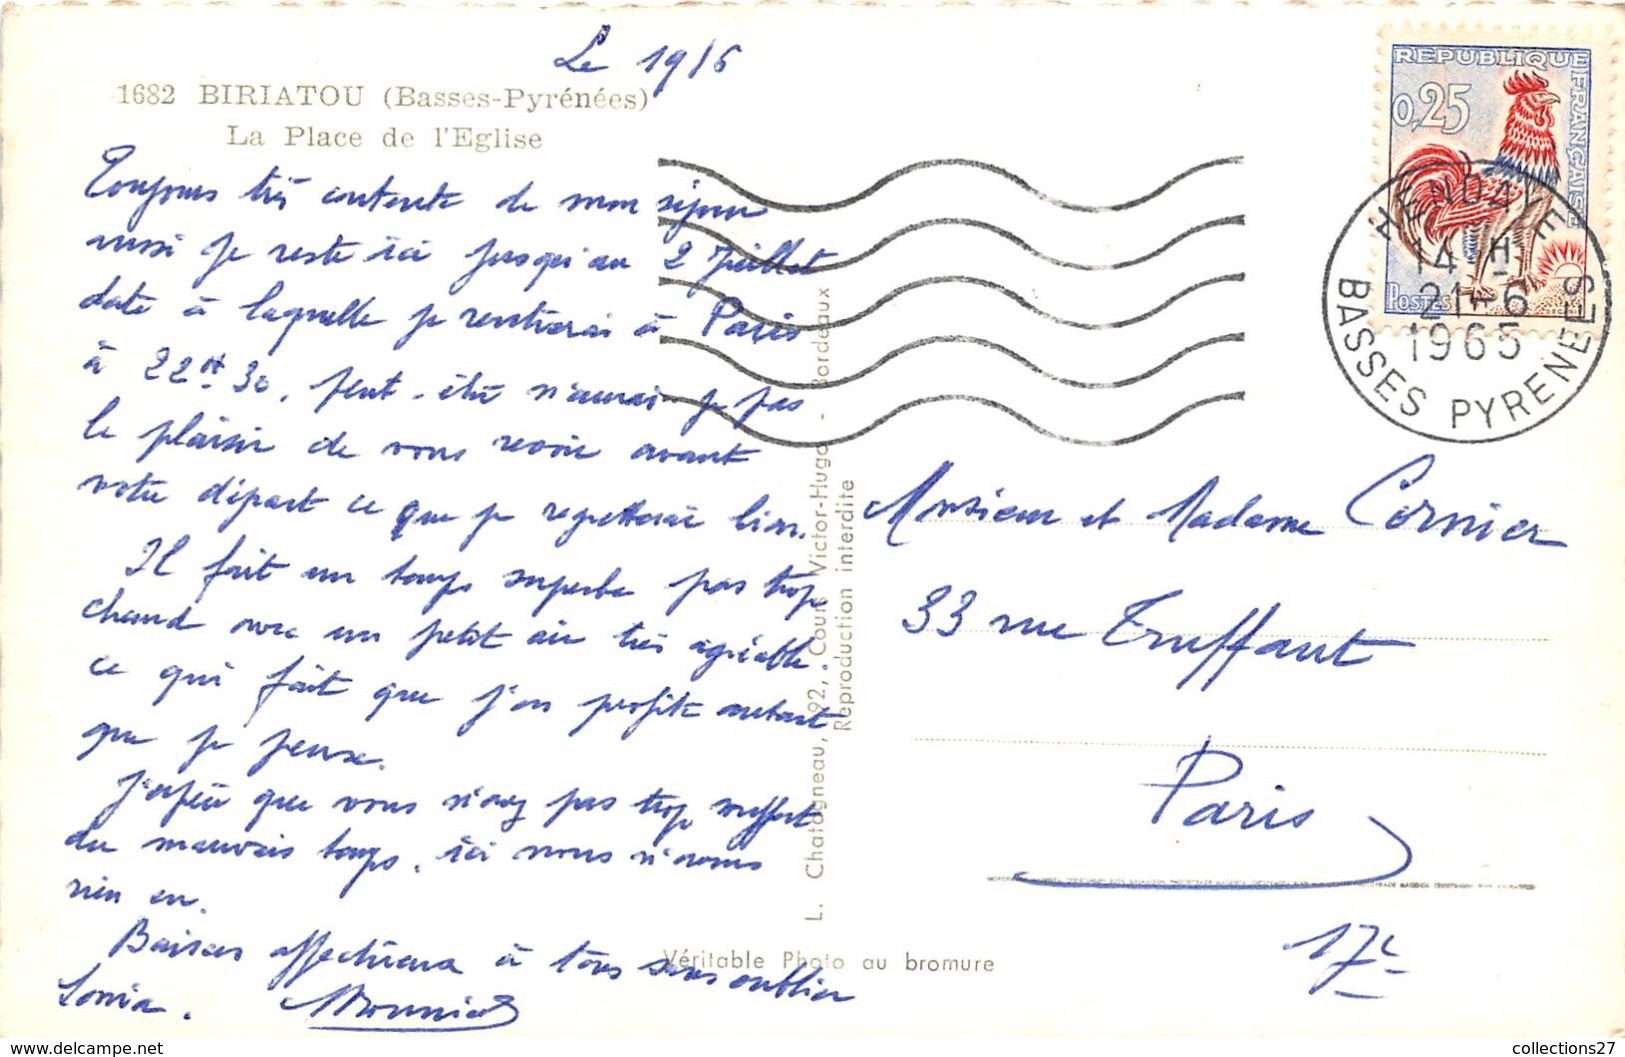 Le 19/6
1682 BIRIATOU (Basses-Pyrénées)
La Place de l'Eglise
Toujours très contente de mon séjour
aussi je reste ici jusqu'au 2 Juillet
date à laquelle je rentrerai à Paris
à 22H30, peut-être n'aurai-je pas
le plaisir de vous revoir avant
votre départ ce que je regretterai bien.
Il fait un temps superbe pas trop
chaud avec un petit air très agréable.
ce qui fait que j'en profite autant
que je peux.
J'espère que vous n'avez pas trop souffert
du mauvais temps, ici nous n'avons
rien eu.
Baisers affectueux à tous sans oublier
Sonia.
L. Chatagneau, 92, Cours Victor-Hugo - Bordeaux
Reproduction interdite
Véritable Photo au bromure
REPUBLIQUE FRANÇAISE
0,25
POSTES
HENDAYE
14 H
21-6
1965
BASSES PYRENEES
Monsieur et Madame Cornier
33 rue Truffaut
Paris
17e
collections27
https://www.delcampe.net